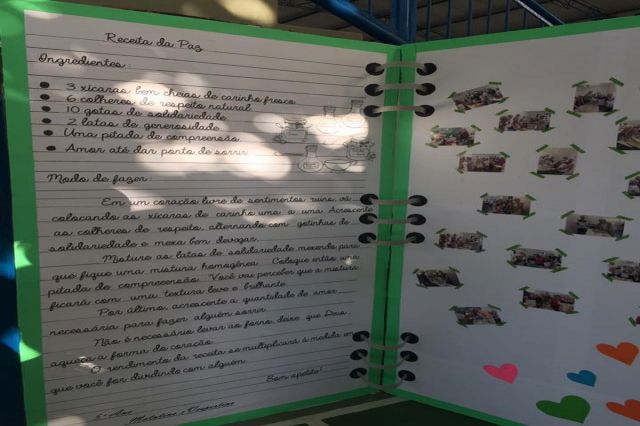 Receita da Paz
Ingredientes:
3 xícaras bem cheias de carinho fresco
6 colheres de respeito natural
10 gotas de solidariedade
2 latas de generosidade
Uma pitada de compreensão
Amor até dar ponto de sorrir
Modo de fazer:
Em um coração livre de sentimentos ruins, vá
colocando as xícaras de carinho uma a uma. Acrescente
as colheres de respeito, alternando com gotinhas de
solidariedade e mexa bem devagar.
Misture as latas de solidariedade mexendo para
que fique uma mistura homogênea. Coloque então uma
pitada de compreensão. Você vai perceber que a mistura
ficará com uma textura leve e brilhante.
Por último, acrescente a quantidade de amor
necessária para fazer alguém sorrir.
Não é necessário levar ao forno, deixe que Deus
aqueça a forma do coração.
O rendimento da receita se multiplicará à medida em
que você for dividindo com alguém.
Bom apetite!
5º Ano